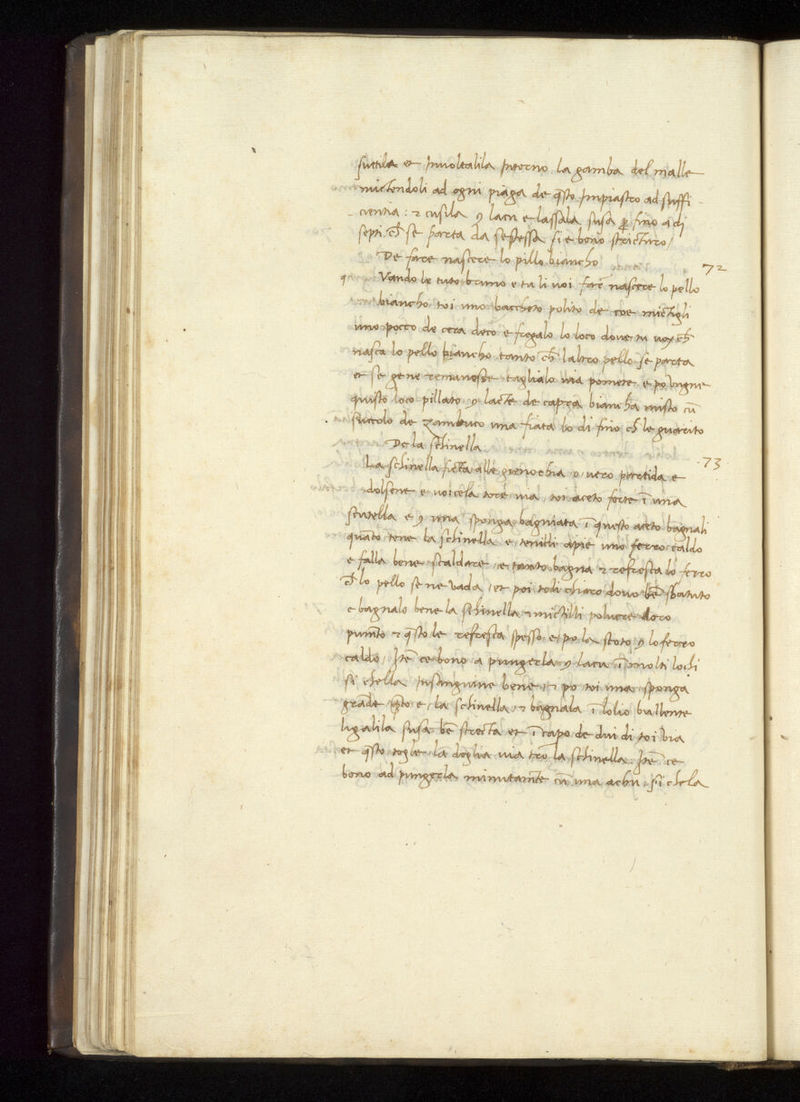 suttila et Involtalila Intorno la gamba del malle
mictendoli ad ogni piaga de q̃sto Impiastro ad suffi
cientia : ⁊ cusila ꝯ lacu e lassala susa ꝑ fino a di
septi. cħ se parta da se stessa si e bono stricturo /
De fare nascere lo pillo biancho
72
q Vando le tuto bruno e tu li voi farẽ nascere lo pello
biancho toi uno baccheto polito de coe mictigli
uno pocco de cera dero e fregalo lo loco dove tu voy cħ
nasca lo pello biancho tanto cħ laltro pello se parta
et se gene remanesse taglialo via pomere e po ungne
quisto loco pillato ꝯ lacte de capra biancha misto cũ
succolo de zambuco una fiata lo di fino cħ le guarito
De la schinella
73
La schinella ficta alle genochia o vero peretida e
dolsene e voicela tore via, toi aceto forte ĩ una
scutella e ꝯ una sponga bagniata ĩ questo aceto bagnali
quãto tene la schinella e tenitli apie uno ferro caldo
e falla bene scaldare / e tanto bagna ⁊ refresca lo ferro
cħ lo pello se ne vada / et poi toli chiaro dovo bẽ sbatuto
e bagnalo bene la schinella ⁊ mictilli polvere doro
pumẽto ⁊ q̃sto le refresca spesso e po la scoto ꝯ lo ferro
caldo / Itẽ ce bono a pungerla ꝯ lacu ĩ molti lochi
si chella Insanguine bene / ⁊ po toi una sponga
grãde q̃to e la schinella / ⁊ bagnala ĩ lolio bullente
ligalila susa bẽ strecta et ĩ capo de dui di toi via
et q̃sto toglie la doglia via tro la schinella. Itẽ ce
bono ad pungerla minutamẽte cũ una achu / sĩ chela